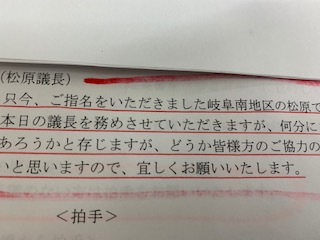 （松原議長）
只今、ご指名をいただきました岐阜南地区の松原で
本日の議長を務めさせていただきますが、何分に
あろうかと存じますが、どうか皆様方のご協力の
いと思いますので、宜しくお願いいたします。
＜拍手＞